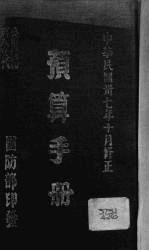 中華民國卅七年十月訂正
預算手册
國防部印發